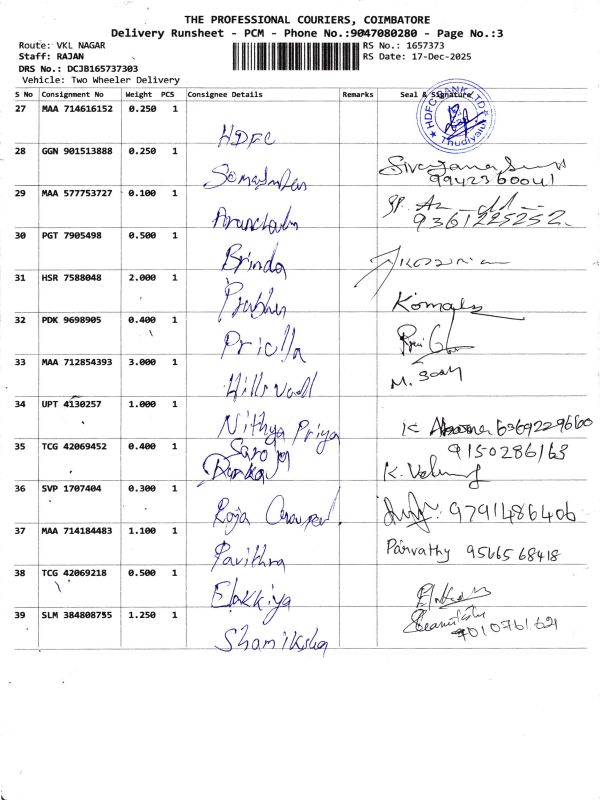 THE PROFESSIONAL COURIERS, COIMBATORE
Delivery Runsheet - PCM - Phone No.:9047080280 - Page No.:3
Route: VKL NAGAR RS No.: 1657373
Staff: RAJAN RS Date: 17-Dec-2025
DRS No.: DCJB165737303
Vehicle: Two Wheeler Delivery
S No Consignment No Weight PCS Consignee Details Remarks Seal & Signature
27 MAA 714616152 0.250 1 HDFC HDFC BANK LTD Thudiyalur
28 GGN 901513888 0.250 1
9942360041
29 MAA 577753727 0.100 1
9361225252
30 PGT 7905498 0.500 1 Brinda
31 HSR 7588048 2.000 1 Prabhu Komala
32 PDK 9698905 0.400 1 Pricilla
33 MAA 712854393 3.000 1
34 UPT 4130257 1.000 1 Nithya Priya K
9150286163
35 TCG 42069452 0.400 1 Saroja
36 SVP 1707404 0.300 1 Roja 9791486406
37 MAA 714184483 1.100 1 Pavithra Parvathy 9566568418
38 TCG 42069218 0.500 1 Elakkiya
39 SLM 384808755 1.250 1 Shamiksha 7010761621